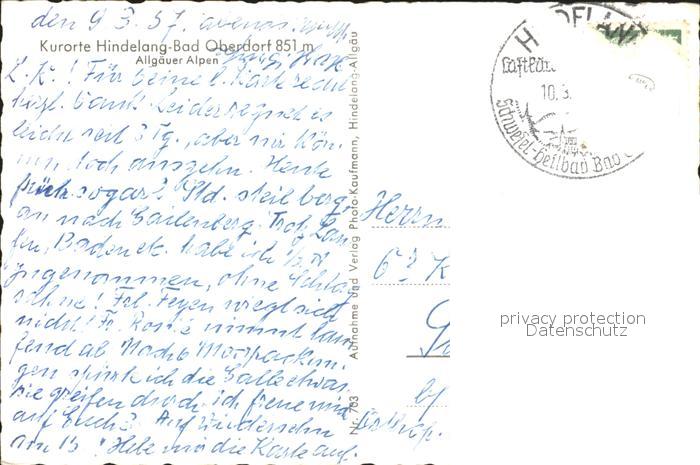 den 9 3. 57. abends.
Kurorte Hindelang-Bad Oberdorf 851 m
Allgäuer Alpen
L. K.! Für Deine l. Karte recht
herzl. Dank. Leider regnet es
leicht seit 3 Tg., aber wir kön-
nen doch ausgehn. Heute
früh sogar 2 Std. steil berg-
an nach Gailenberg. Trotz Lau-
fen, Baden etc. habe ich
zugenommen, ohne Schlag-
sahne! Frl. wiegt sich
nicht! Fr. nimmt lau-
fend ab. Nach 6 Moorpackun-
gen ich die Galle
sie greifen doch. ich freue mich
auf Euch 2. Auf Wiedersehn
am 13! Hebe mir die Karte auf.
Nr. 703 Aufnahme und Verlag Photo-Kaufmann, Hindelang-Allgäu
HINDELANG
10. 3.
Schwefel-Heilbad Bad
Herrn
privacy protection
Datenschutz